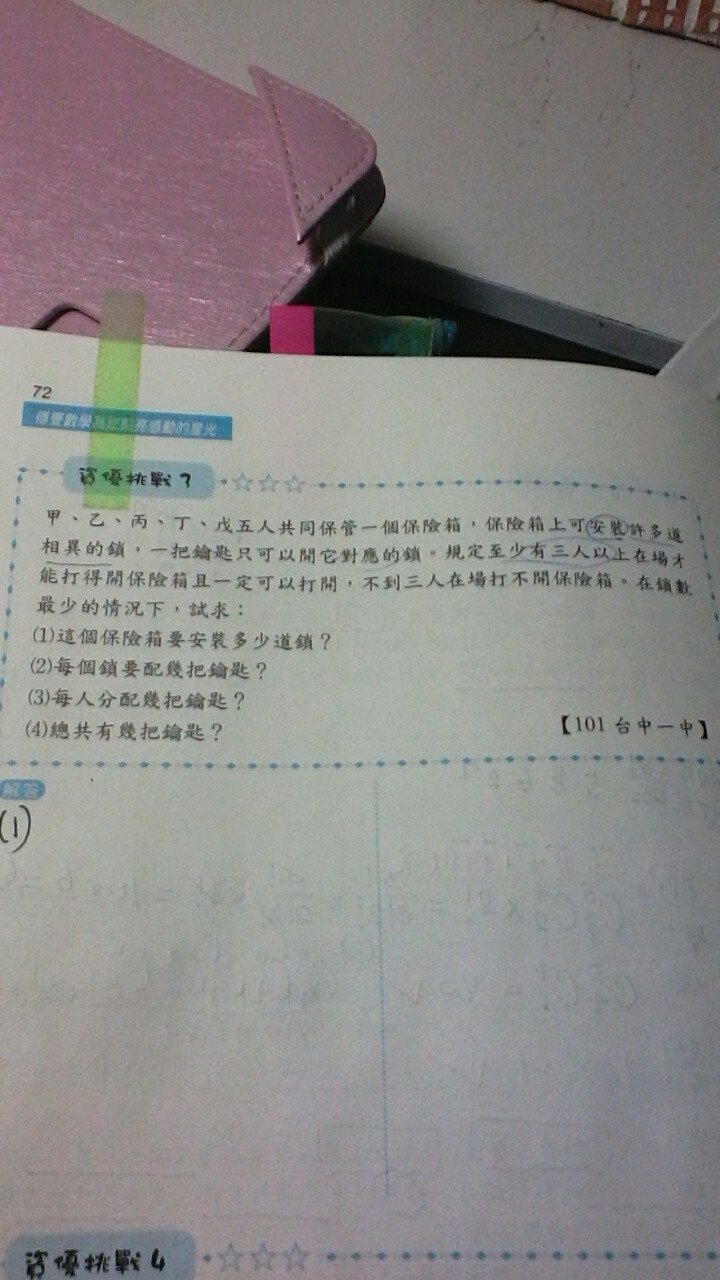 72
資優挑戰3
甲、乙、丙、丁、戊五人共同保管一個保險箱,保險箱上可安裝許多道
相異的鎖,一把鑰匙只可以開它對應的鎖。規定至少有三人以上在場才
能打得開保險箱且一定可以打開,不到三人在場打不開保險箱。在鎖數
最少的情況下,試求:
(1)這個保險箱要安裝多少道鎖?
(2)每個鎖要配幾把鑰匙?
(3)每人分配幾把鑰匙?
(4)總共有幾把鑰匙?
【101 台中一中】
解答
(1)
資優挑戰4